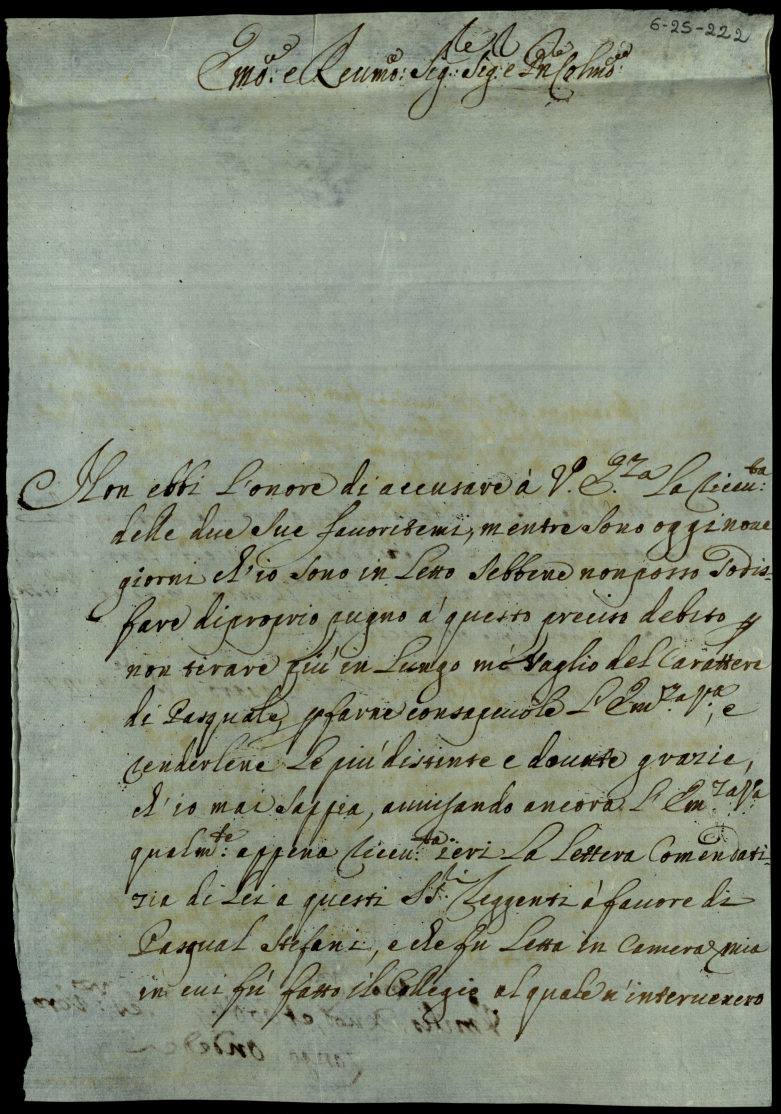 6-25-222
Emo: e Reumo: Sig: Sig: e Pne Colmo:
Non ebbi l'onore di accusare à V. E.za La riceu:ta
delle due sue fauoritemi, mentre sono oggi noue
giorni ch'io sono in Letto sebbene non posso sodis-
fare di proprio pugno a' questo preciso debito p
non tirare più in Lungo mi vaglio del Carattere
di Pasquale, p farne consapeuole L'Em.za V.a, e
renderlene Le più distinte e douute grazie,
ch'io mai sappia, auuisando ancora L'Em.za V.a
qualm:te appena riceu:ta ieri La Lettera Comendati-
zia di Lei a questi SS:ri Reggenti à fauore di
Pasqual Stefani, e che fu Letta in Camera mia
in cui fù fatto il Collegio al quale u'interuenero